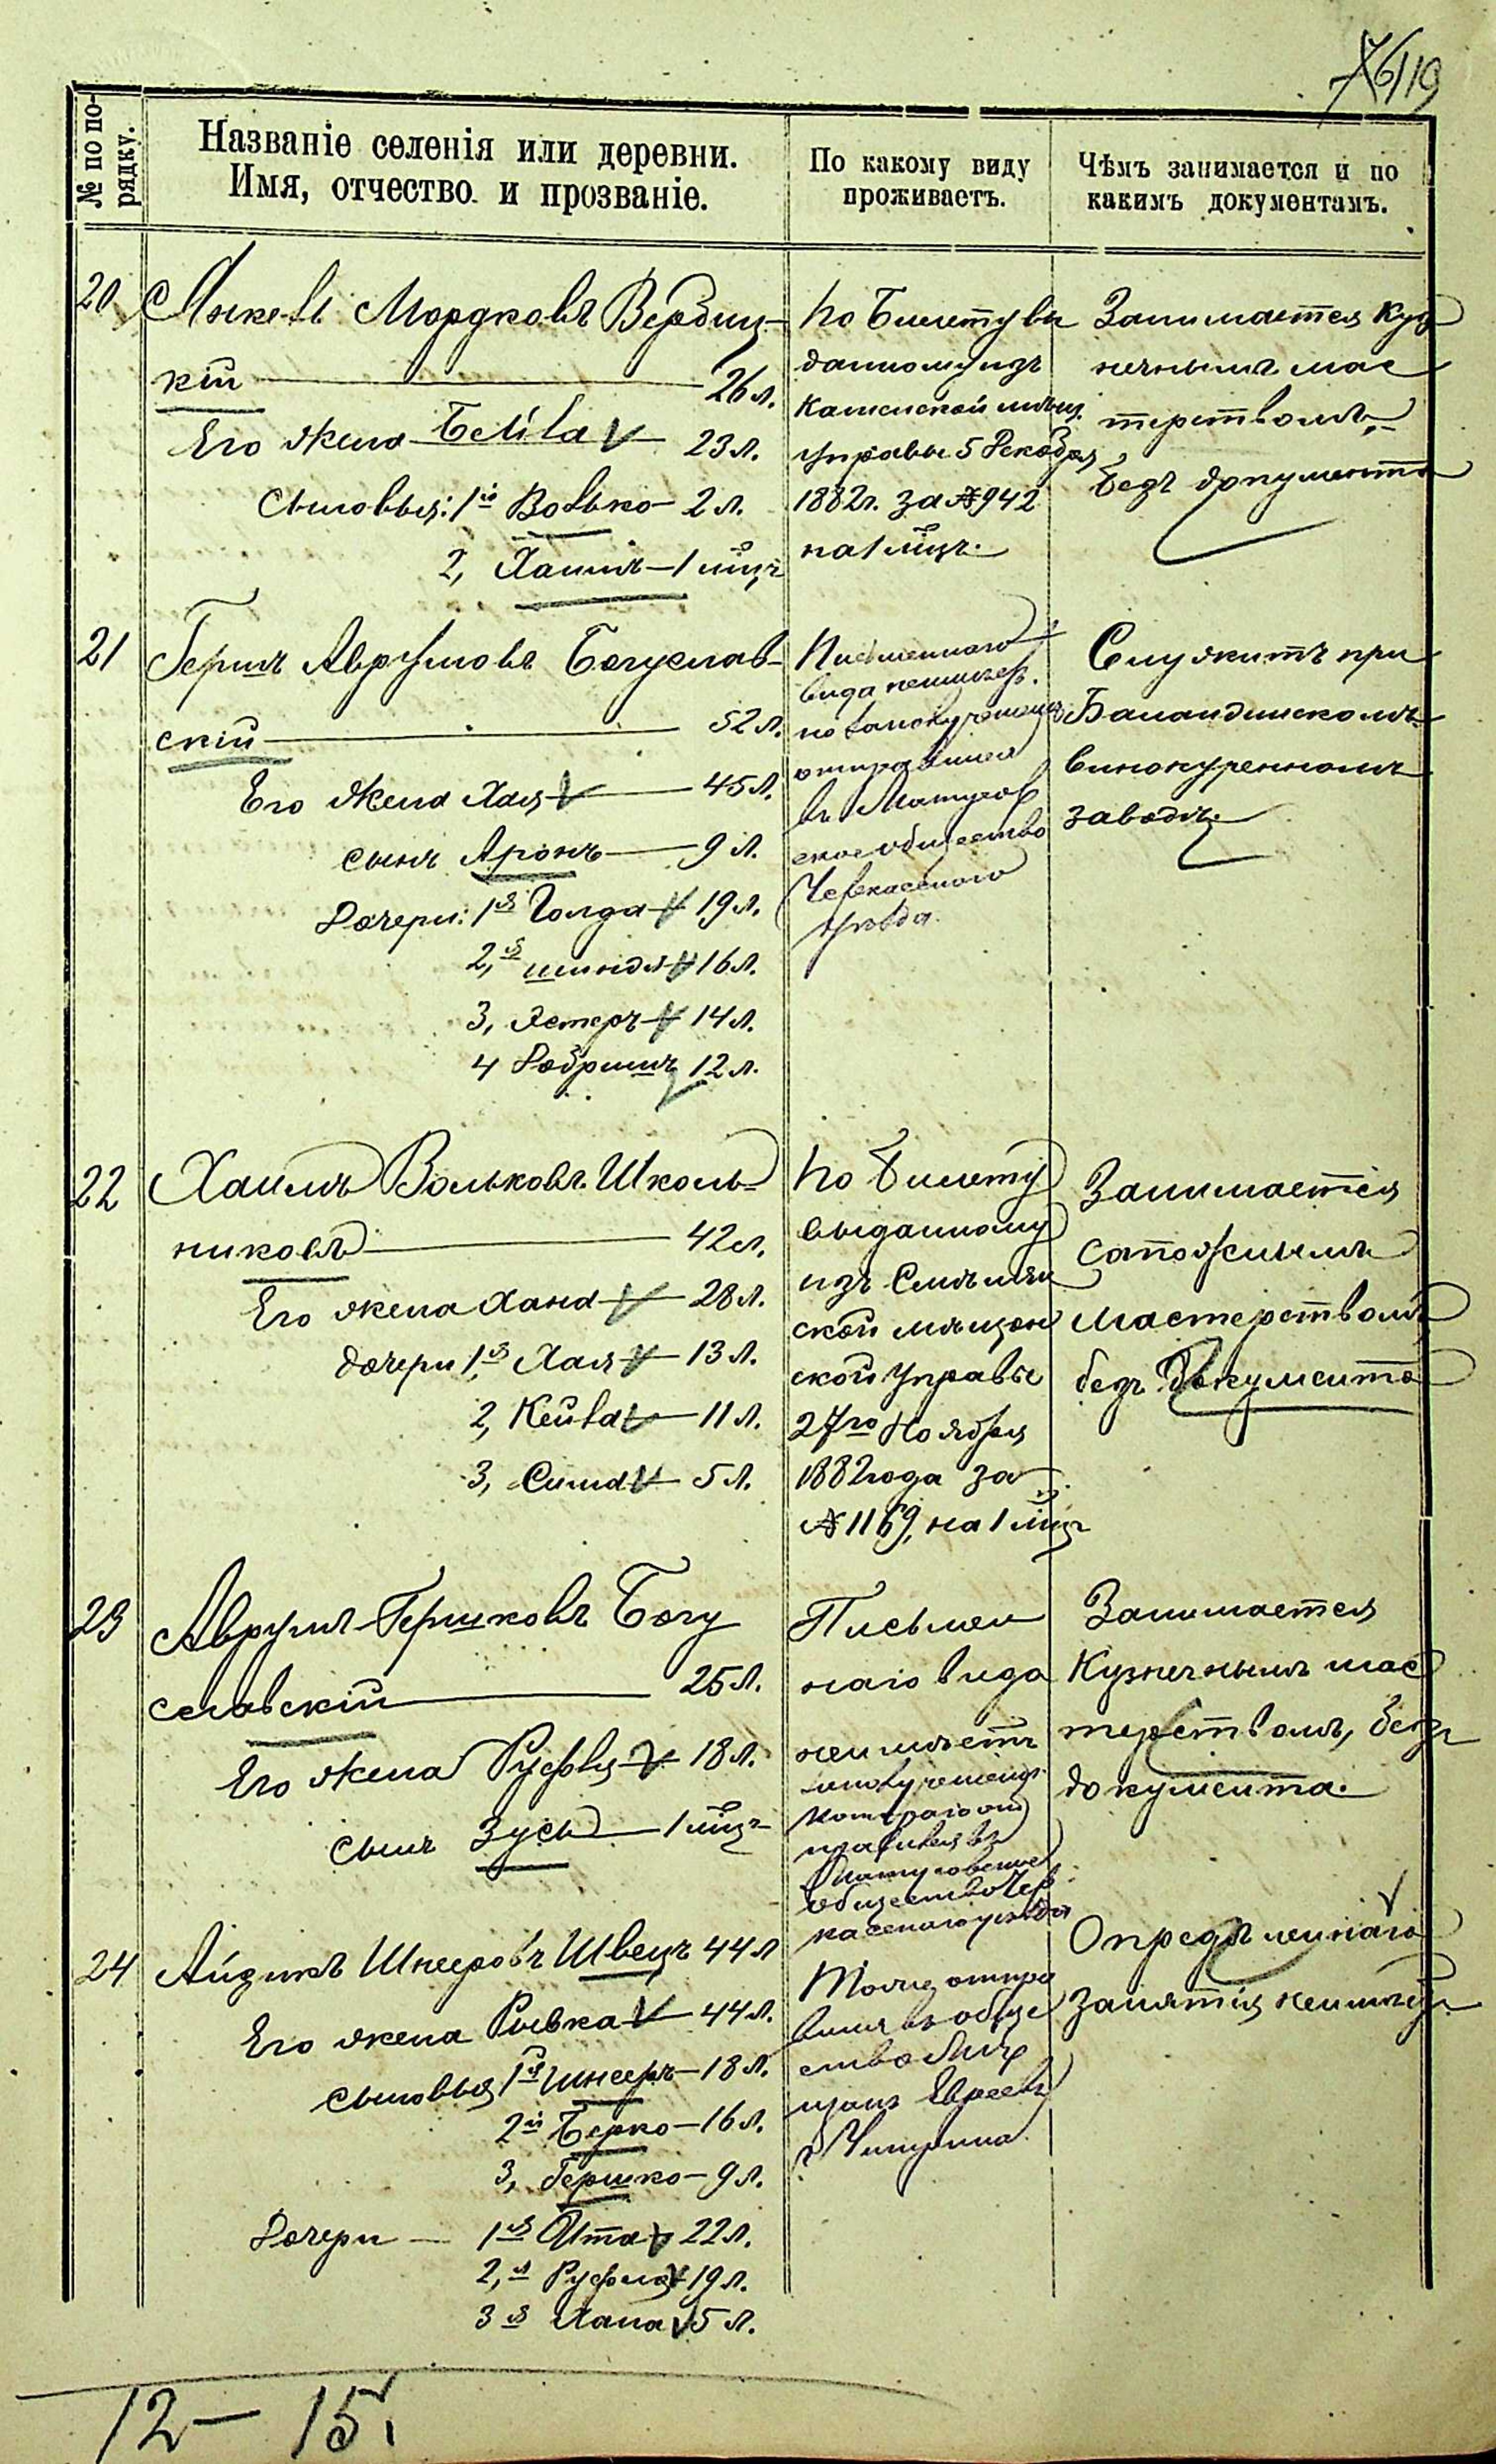 76/19
№ по по-
рядку.
Названіе селенія или деревни.
Имя, отчество и прозваніе.
По какому виду
проживаетъ.
Чѣмъ занимается и по
какимъ документамъ.
20
Янкель Мордковъ Вербиц-
кій — 26 л.
Его жена Бейла 23 л.
Сыновья: 1й Волько — 2 л.
2, Хаимъ — 1 мѣц
По билету вы
данному изъ
Каменской мѣщ.
управы 5 Декабря
1882 г. за № 942
на 1 мѣцъ.
Занимается куз
нечнымъ мас
терствомъ,
безъ документа
21
Гершъ Аврумовъ Богуслав-
скій — 52 л.
Его жена Хая — 45 л.
сынъ Аронъ — 9 л.
Дочери: 1я Голда 19 л.
2,я шиндля 16 л.
3, Эстеръ 14 л.
4 Добришъ 12 л.
Письменного
вида
отправился
въ Матусов
ское общество
Черкасского
уѣзда.
Служитъ при
Баландинскомъ
винокуренномъ
заводѣ.
22
Хаимъ Вольковъ Школь-
никовъ — 42 л.
Его жена Хана — 28 л.
дочери 1,я Хая — 13 л.
2, Кейла — 11 л.
3, Сима — 5 л.
По билету
выданному
изъ Смѣлян
ской мѣщан
ской управы
27го Ноября
1882 года за
№ 1169, на 1 мѣц
Занимается
сапожнымъ
мастерствомъ
безъ документа
23
Аврумъ Гершковъ Богу
славскій — 25 л.
Его жена Руфля 18 л.
сынъ Зусь — 1 мѣц
Письмен
наго вида
неимѣетъ
котораго от
правился въ
Матусовское
общество Чер
касского уѣзда
Занимается
Кузнечнымъ мас
терствомъ, безъ
документа.
24
Айзикъ Шнееровъ Швецъ 44 л
Его жена Рывка 44 л.
сыновья 1й Шнееръ — 18 л.
2й Берко — 16 л.
3, Гершко — 9 л.
Дочери — 1я Ита 22 л.
2,я Руфля 19 л.
3я Хана 5 л.
Тоже отпра
вился въ обще
ство Мѣ
щанъ Евреевъ
г Чигирина
Опредѣленнаго
занятія неимѣетъ
12 — 15.